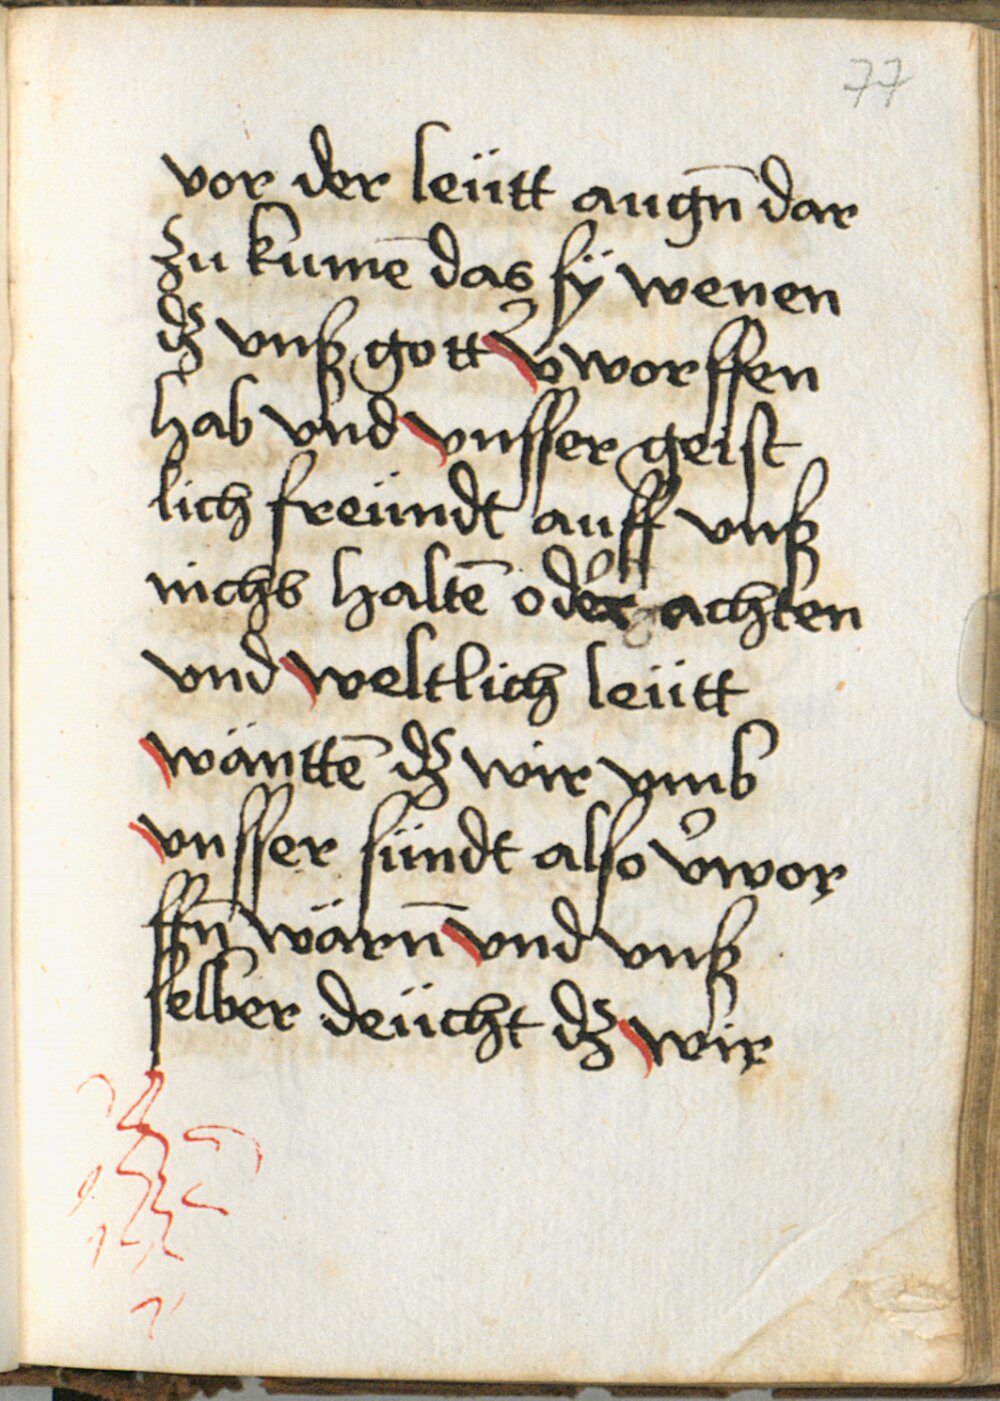 77
vor der leütt augn̄ dar
zu kumē das sÿ wenen
dʒ vnß gott v̕worffen
hab vnd vnsser geist
lich freündt auff vnß
nichs haltē oder achten
vnd weltlich leütt
wänttē dʒ wir vmb
vnsser sündt also v̕wor
ffn̄ wärn̄ vnd vnß
selber deücht dʒ wir